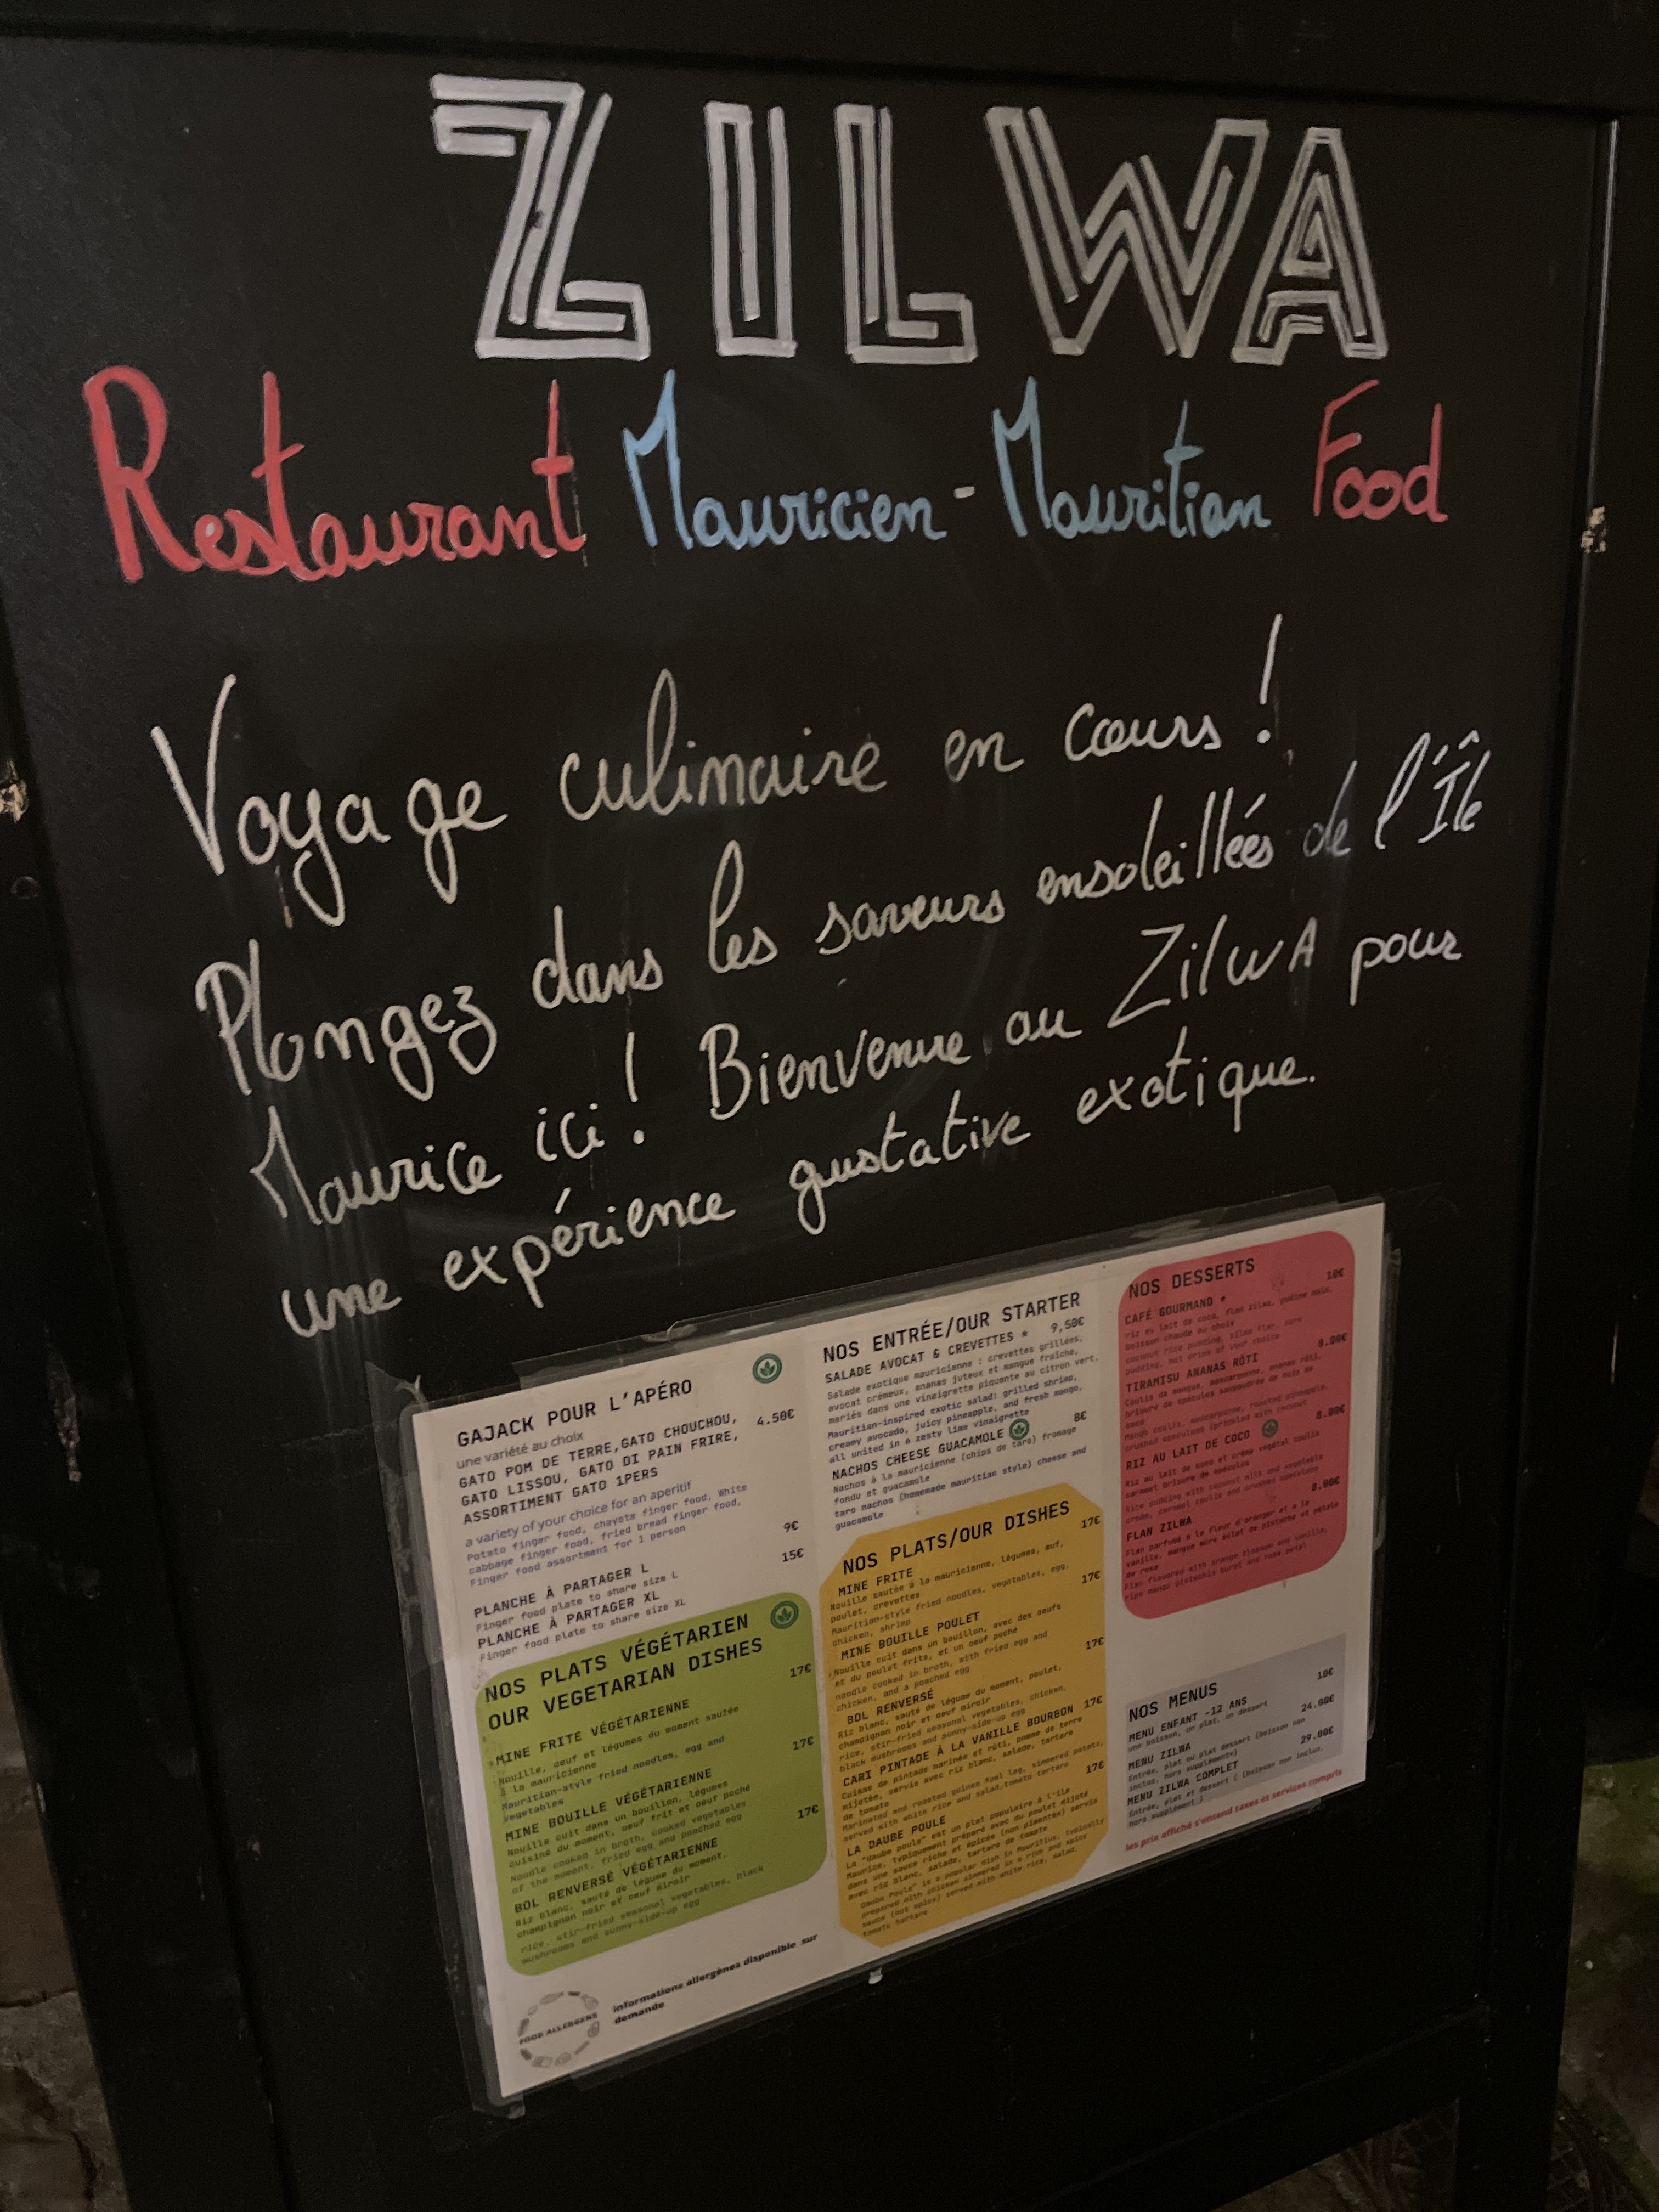 ZILWA
Restaurant Mauricien - Mauritian Food
Voyage culinaire en cœurs !
Plongez dans les saveurs ensoleillées de l'Île
Maurice ici ! Bienvenue au ZilwA pour
une expérience gustative exotique.
GAJACK POUR L'APÉRO
une variété au choix
GATO POM DE TERRE, GATO CHOUCHOU, 4.50€
GATO LISSOU, GATO DI PAIN FRIRE,
ASSORTIMENT GATO 1PERS
a variety of your choice for an aperitif
Potato finger food, chayote finger food, White
cabbage finger food, fried bread finger food,
Finger food assortment for 1 person
PLANCHE À PARTAGER L 9€
Finger food plate to share size L
PLANCHE À PARTAGER XL 15€
Finger food plate to share size XL
NOS PLATS VÉGÉTARIEN
OUR VEGETARIAN DISHES
MINE FRITE VÉGÉTARIENNE 17€
Nouille, oeuf et légumes du moment sautée
à la mauricienne
Mauritian-style fried noodles, egg and
vegetables
MINE BOUILLE VÉGÉTARIENNE 17€
Nouille cuit dans un bouillon, légumes
cuisiné du moment, oeuf frit et oeuf poché
Noudle cooked in broth, cooked vegetables
of the moment, fried egg and poached egg
BOL RENVERSÉ VÉGÉTARIENNE 17€
Riz blanc, sauté de légume du moment,
champignon noir et oeuf miroir
rice, stir-fried seasonal vegetables, black
mushrooms and sunny-side-up egg
FOOD ALLERGENS
informations allergènes disponible sur
demande
NOS ENTRÉE/OUR STARTER
SALADE AVOCAT & CREVETTES * 9,50€
Salade exotique mauricienne : crevettes grillées,
avocat crémeux, ananas juteux et mangue fraîche,
mariés dans une vinaigrette piquante au citron vert.
Mauritian-inspired exotic salad: grilled shrimp,
creamy avocado, juicy pineapple, and fresh mango,
all united in a zesty lime vinaigrette
NACHOS CHEESE GUACAMOLE 8€
Nachos à la mauricienne (chips de taro) fromage
fondu et guacamole
taro nachos (homemade mauritian style) cheese and
guacamole
NOS PLATS/OUR DISHES
MINE FRITE 17€
Nouille sautée à la mauricienne, légumes, œuf,
poulet, crevettes
Mauritian-style fried noodles, vegetables, egg,
chicken, shrimp
MINE BOUILLE POULET 17€
Nouille cuit dans un bouillon, avec des oeufs
et du poulet frits, et un oeuf poché
noodle cooked in broth, with fried egg and
chicken, and a poached egg
BOL RENVERSÉ 17€
Riz blanc, sauté de légume du moment, poulet,
champignon noir et oeuf miroir
rice, stir-fried seasonal vegetables, chicken,
black mushrooms and sunny-side-up egg
CARI PINTADE À LA VANILLE BOURBON 17€
Cuisse de pintade marinée et rôti, pomme de terre
mijotée, servis avec riz blanc, salade, tartare
de tomate
Marinated and roasted guinea fowl leg, simmered potato,
served with white rice and salad, tomato tartare
LA DAUBE POULE 17€
La "daube poule" est un plat populaire à l'île
Maurice, typiquement préparé avec du poulet mijoté
dans une sauce riche et épicée (non pimentée) servis
avec riz blanc, salade, tartare de tomate
"Daube Poule" is a popular dish in Mauritius, typically
prepared with chicken simmered in a rich and spicy
sauce (not spicy) served with white rice, salad,
tomato tartare
NOS DESSERTS
CAFÉ GOURMAND * 10€
riz au lait de coco, flan zilwa, pudine maïs,
boisson chaude au choix
coconut rice pudding, zilwa flan, corn
pudding, hot drink of your choice
TIRAMISU ANANAS RÔTI 8.00€
Coulis de mangue, mascarpone, ananas rôti,
brisure de spéculos saupoudrée de noix de
coco
Mango coulis, mascarpone, roasted pineapple,
crushed speculoos sprinkled with coconut
RIZ AU LAIT DE COCO 8.00€
Riz au lait de coco et crème végétal coulis
caramel brisure de spéculos
Rice pudding with coconut milk and vegetable
cream, caramel coulis and crushed speculoos
FLAN ZILWA 8.00€
Flan parfumé à la fleur d'oranger et à la
vanille, mangue mûre éclat de pistache et pétale
de rose
Flan flavored with orange blossom and vanilla,
ripe mango pistachio burst and rose petal
NOS MENUS
MENU ENFANT -12 ANS 10€
une boisson, un plat, un dessert
MENU ZILWA 24.00€
Entrée, plat ou plat dessert (boisson non
inclus, hors suppléments)
MENU ZILWA COMPLET 29.00€
Entrée, plat et dessert ( (boisson non inclus,
hors supplément )
les prix affiché s'entend taxes et services compris